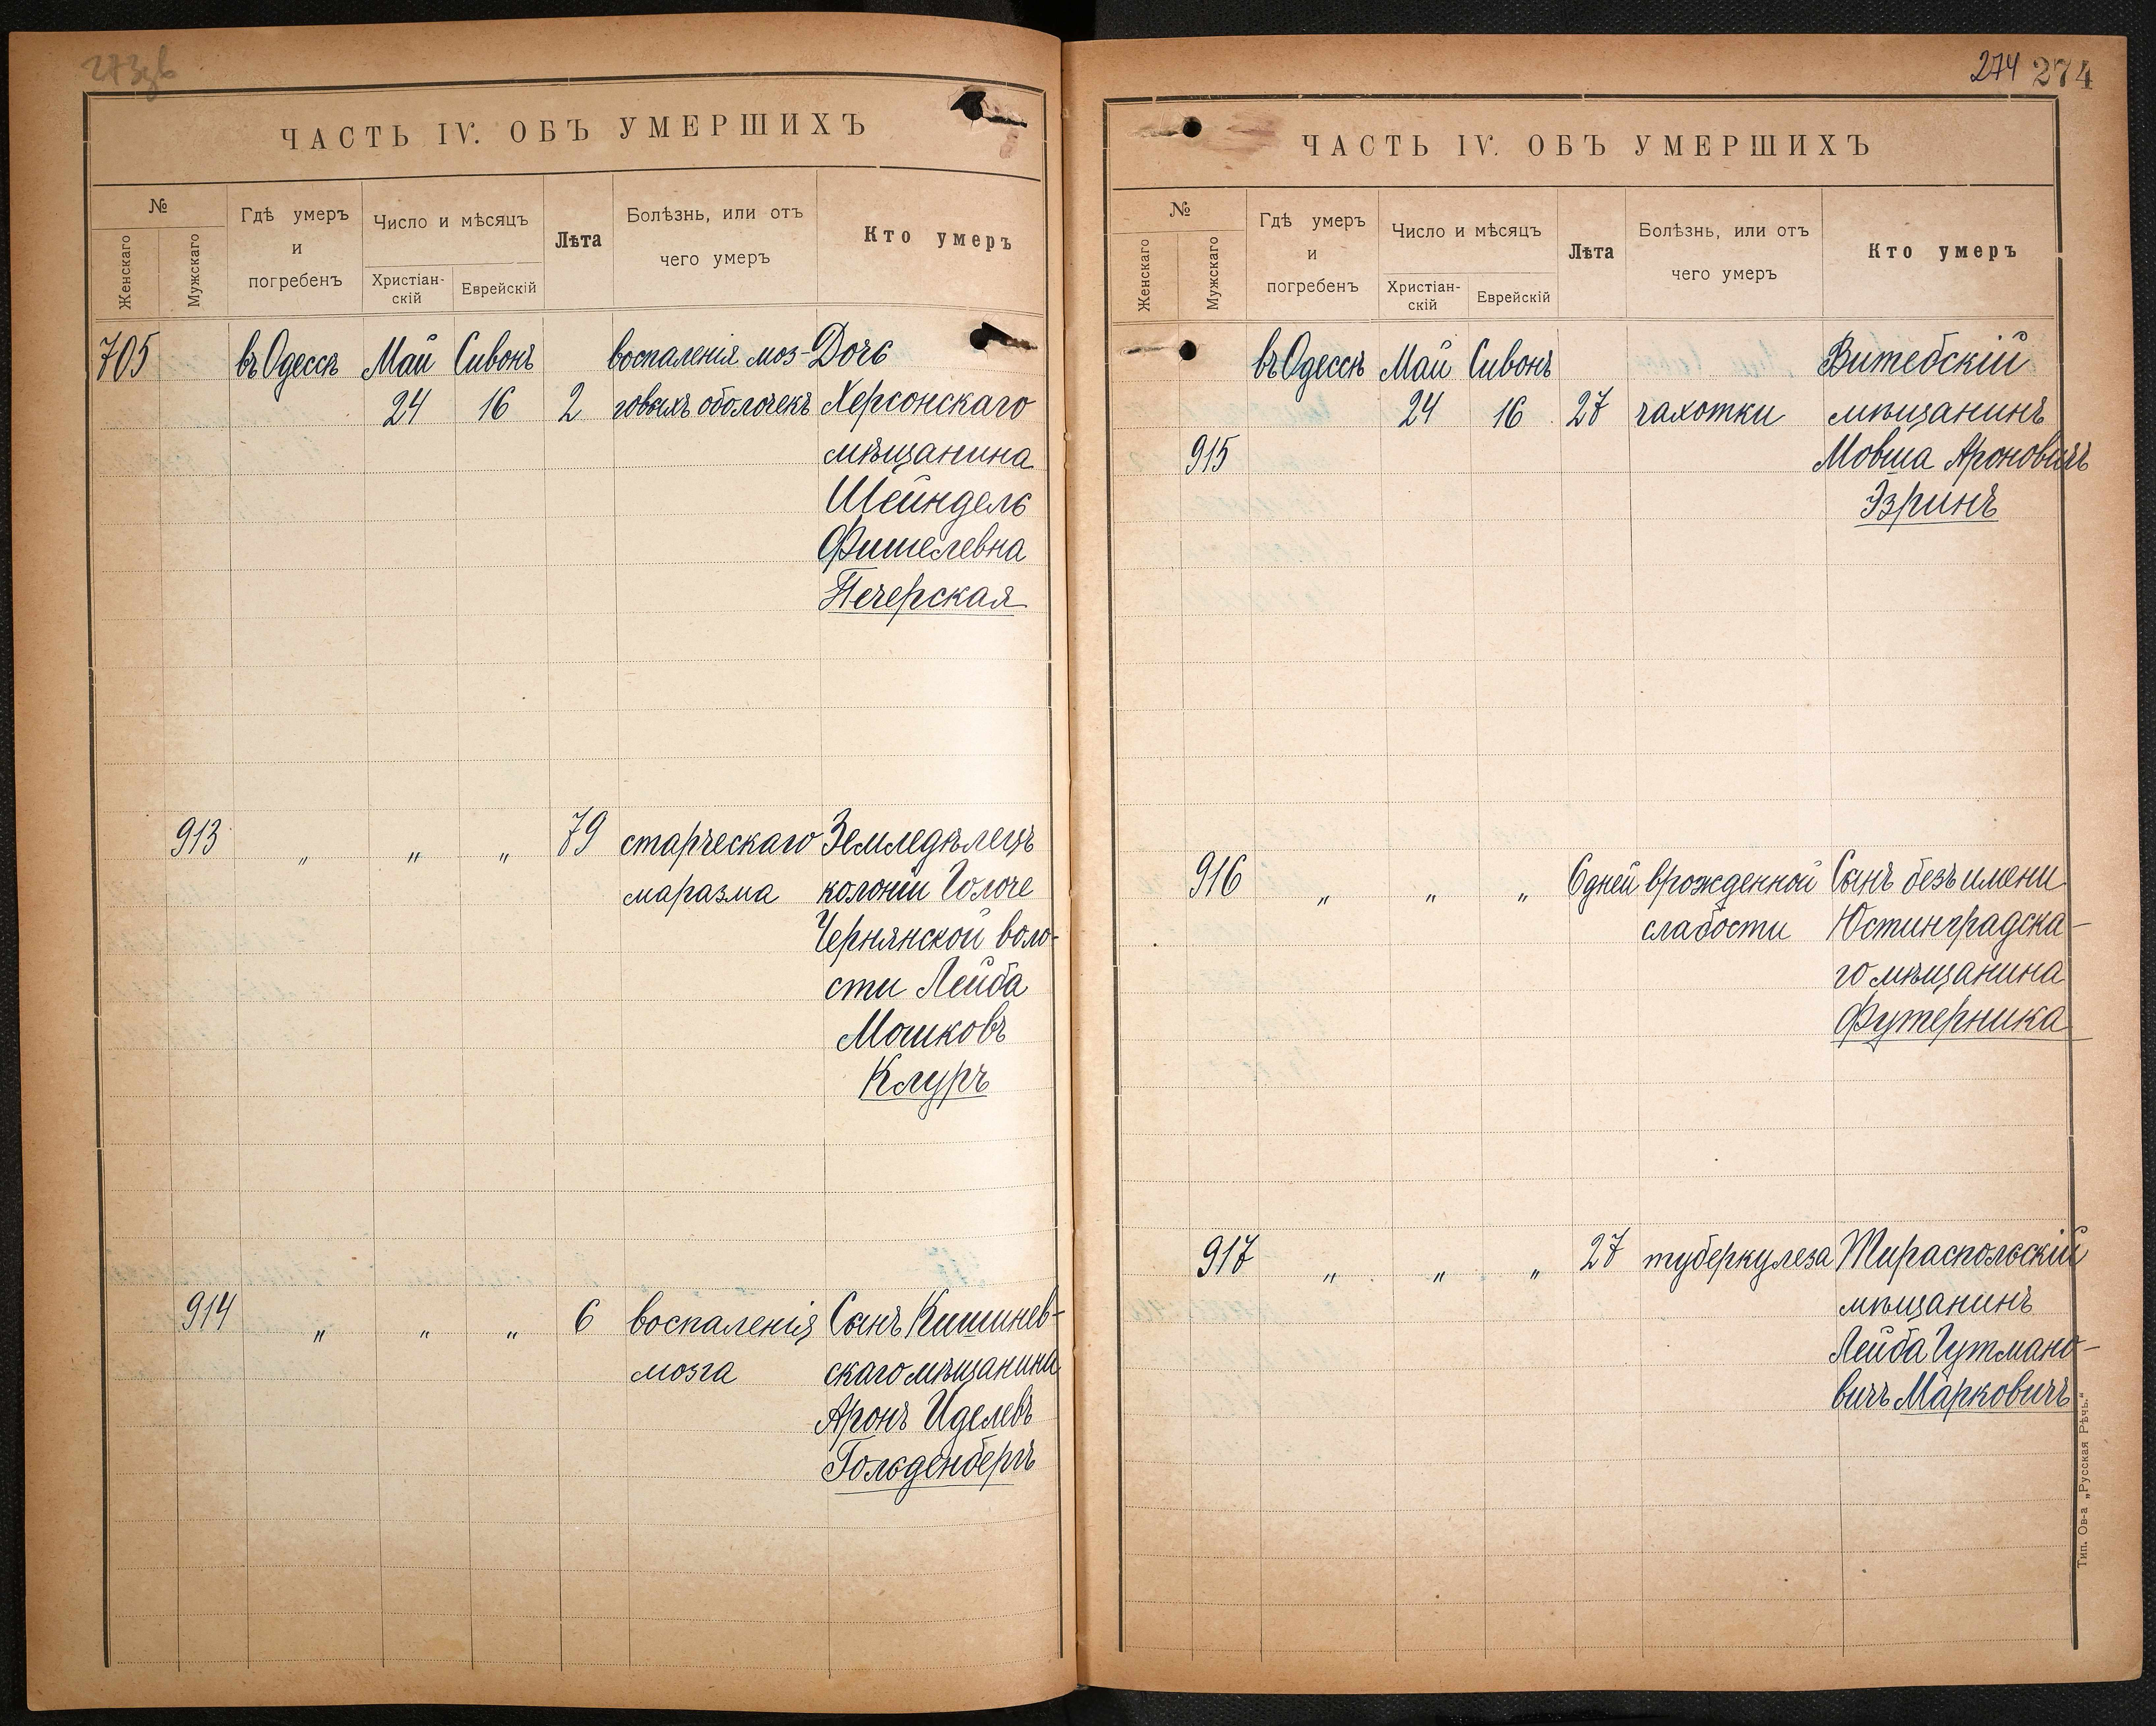 273зв
ЧАСТЬ IV. ОБЪ УМЕРШИХЪ
№
Женскаго
Мужскаго
Гдѣ умеръ
и
погребенъ
Число и мѣсяцъ
Христіан-
скій
Еврейскій
Лѣта
Болѣзнь, или отъ
чего умеръ
Кто умеръ
705 въ Одессѣ Май Сивонъ воспаленія моз- Дочь
24 16 2 говыхъ оболочекъ Херсонскаго
мѣщанина
Шейндель
Фишелевна
Печерская
913 „ „ „ 79 старческаго Земледѣлецъ
маразма колоніи Голоче
Чернянской воло-
сти Лейба
Мошковъ
Клуръ
914 „ „ „ 6 воспаленія Сынъ Кишинев-
мозга скаго мѣщанина
Аронъ Иделевъ
Гольденбергъ
274 274
ЧАСТЬ IV. ОБЪ УМЕРШИХЪ
№
Женскаго
Мужскаго
Гдѣ умеръ
и
погребенъ
Число и мѣсяцъ
Христіан-
скій
Еврейскій
Лѣта
Болѣзнь, или отъ
чего умеръ
Кто умеръ
въ Одессѣ Май Сивонъ Витебскій
24 16 27 чахотки мѣщанинъ
915 Мовша Ароновичъ
Эзринъ
916 „ „ „ 6 дней врожденной Сынъ безъ имени
слабости Юстинградска-
го мѣщанина
Футерника
917 „ „ „ 27 туберкулеза Тираспольскій
мѣщанинъ
Лейба Гутмано-
вичъ Марковичъ
Тип. Ов-а „Русская Рѣчь.“